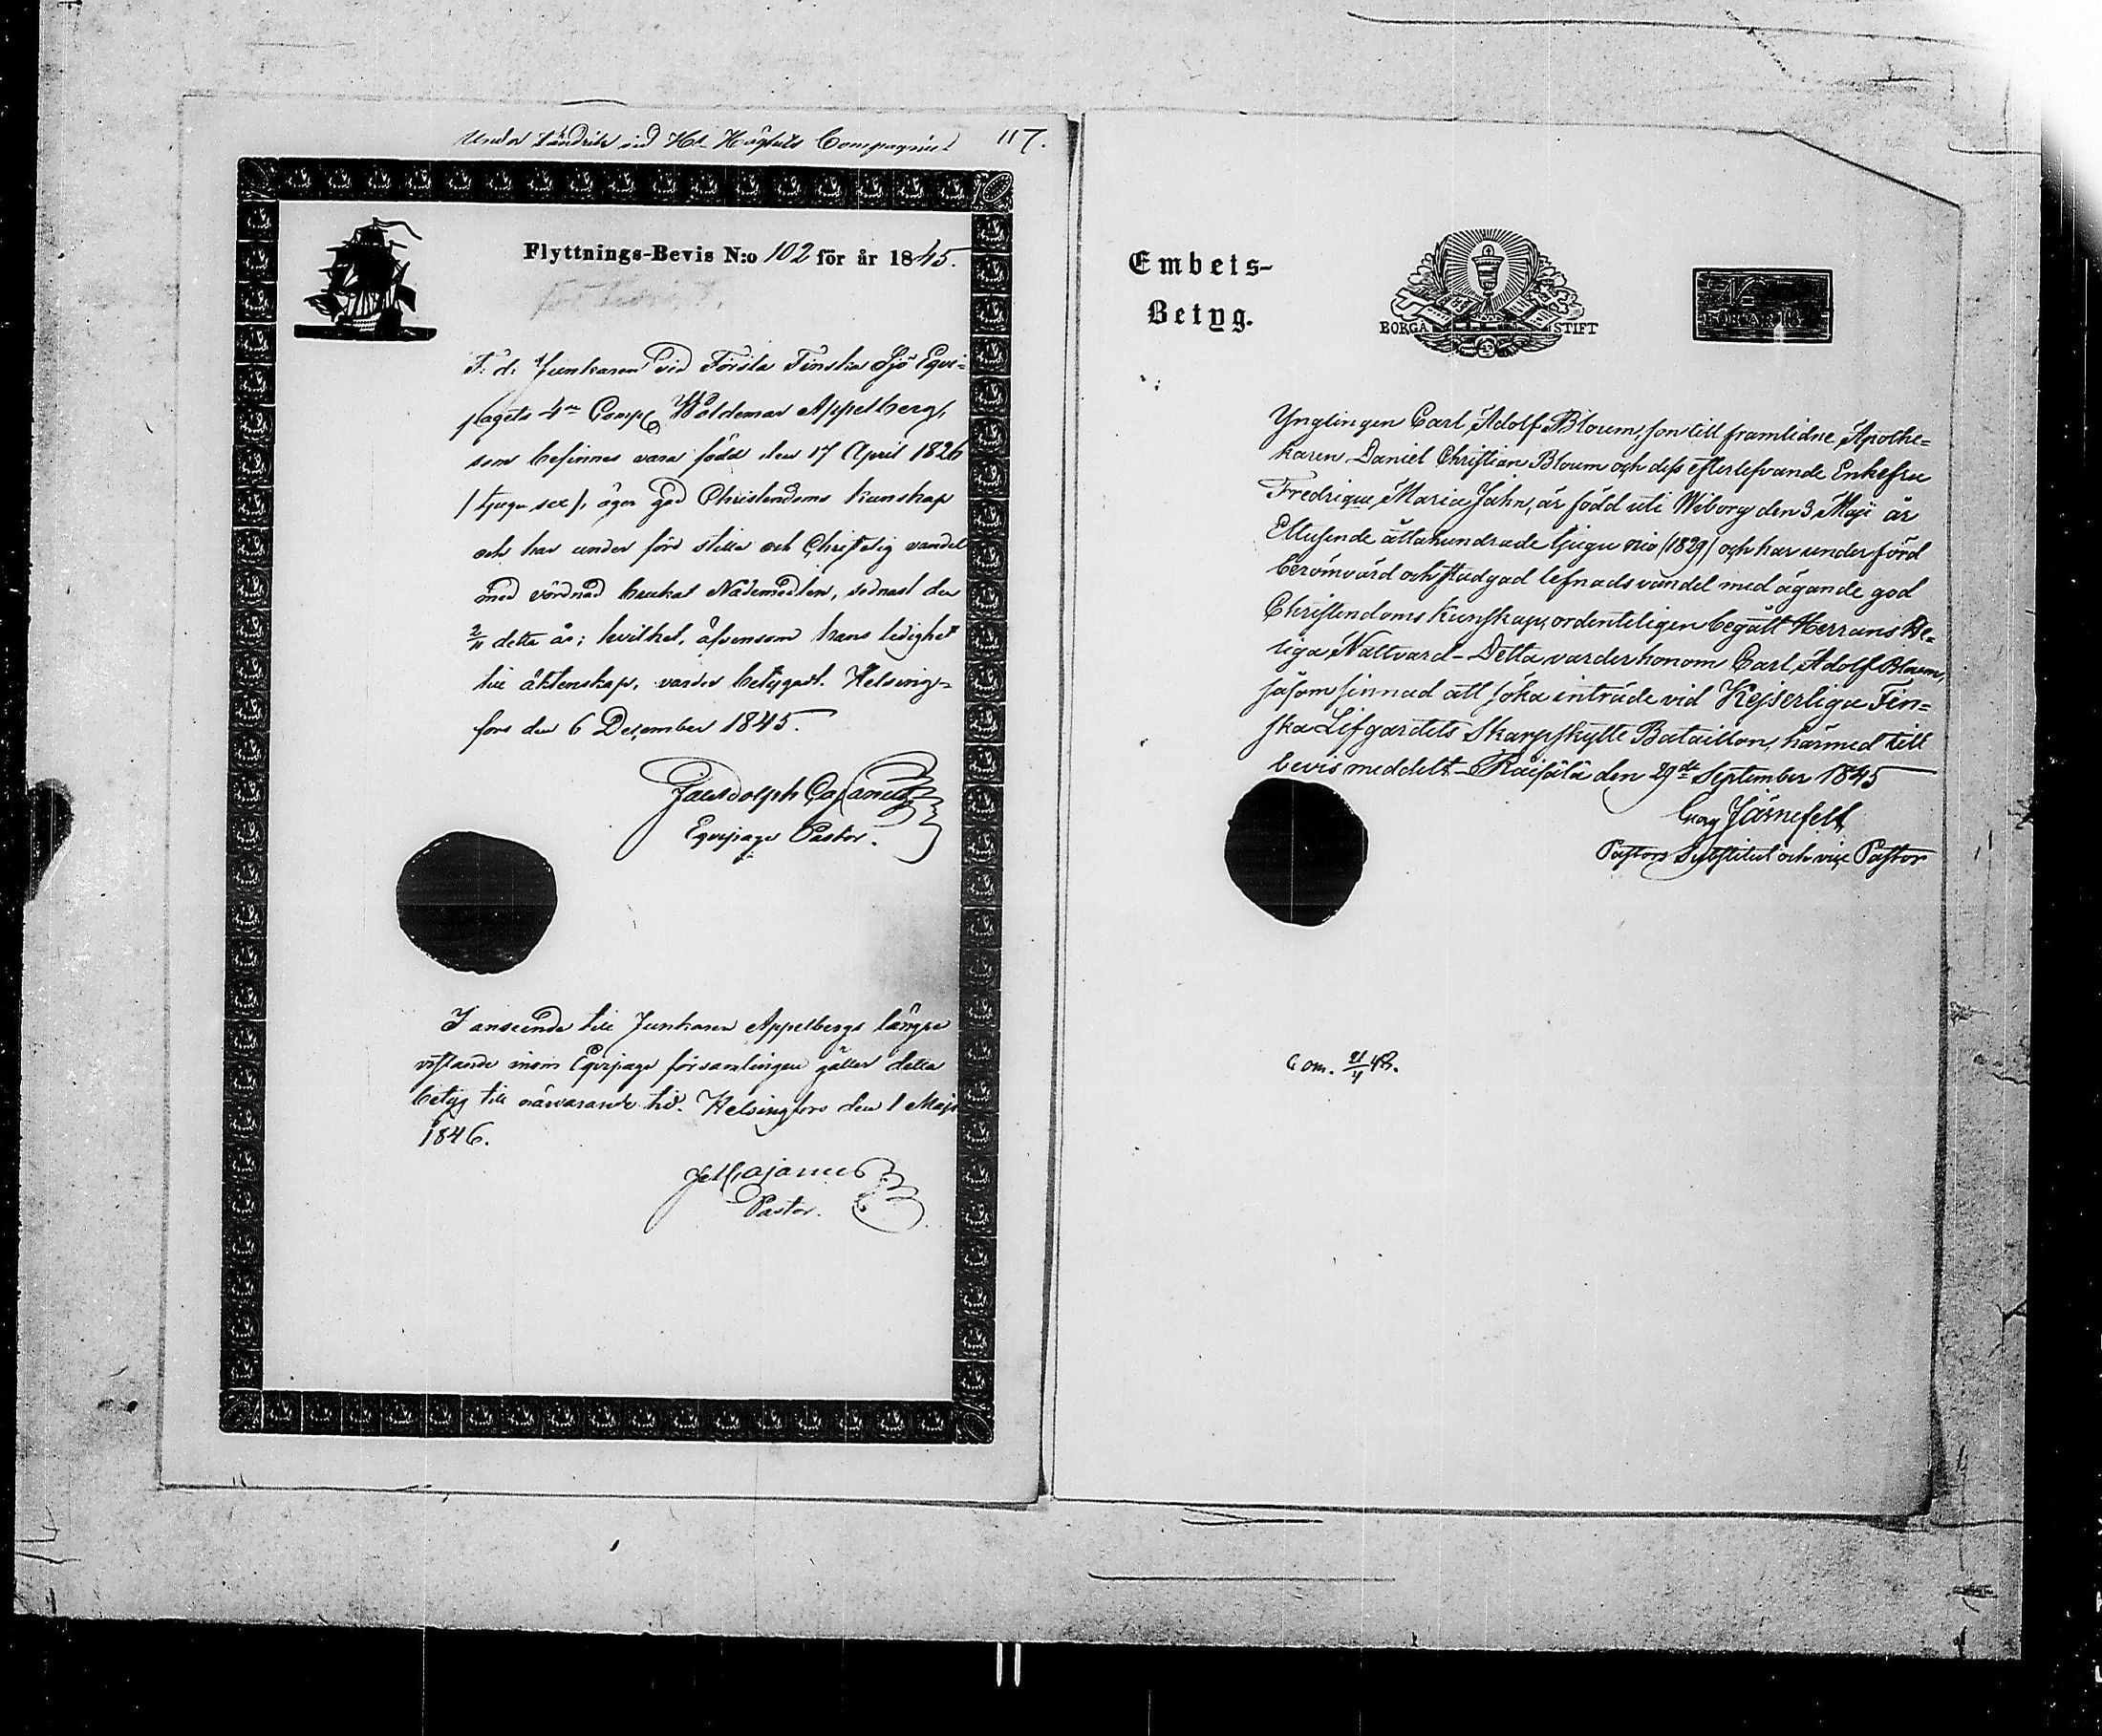 117.
Flyttnings-Bevis N:o 102 för år 1845.
F. d. Junkaren vid Första Finska Sjö Eqvi-
pagets 4de Comp. Woldemar Appelberg,
som befinnes vara född den 17 April 1826
/tjugu sex/, äger god Christendoms kunskap
och har under förd stilla och Christelig vandel
med vördnad brukat Nådemedlen, sednast den
2/11 detta år; hvilket, äfvensom hans ledighet
till äktenskap, varder betygadt. Helsing-
fors den 6 December 1845.
Cajanus
Eqvipage Pastor.
I anseende till Junkaren Appelbergs längre
vistande inom Eqvipage församlingen gäller detta
betyg till närvarande tid. Helsingfors den 1 Maji
1846.
Cajanus
Pastor.
Embets-
Betyg.
BORGÅ STIFT
Ynglingen Carl Adolf Bloum, son till framlidne Apothe-
karen Daniel Christian Bloum och dess efterlefvande Enkefru
Fredrique Maria Jahn, är född uti Wiborg den 3 Maji år
Ettusende åttahundrade tjugu nio (1829) och har under förd
berömvärd och stadgad lefnadsvandel med ägande god
Christendoms Kunskap, ordenteligen begått Herrans He-
liga Nattvard - Detta varder honom Carl Adolf Bloum,
såsom sinnad att söka inträde vid Kejserliga Fin-
ska Lifgardets Skarpskytte Bataillon, härmed till
bevis meddelt - Räisälä den 29de September 1845
Georg Järnefelt
Pastors Substitut och vice Pastor